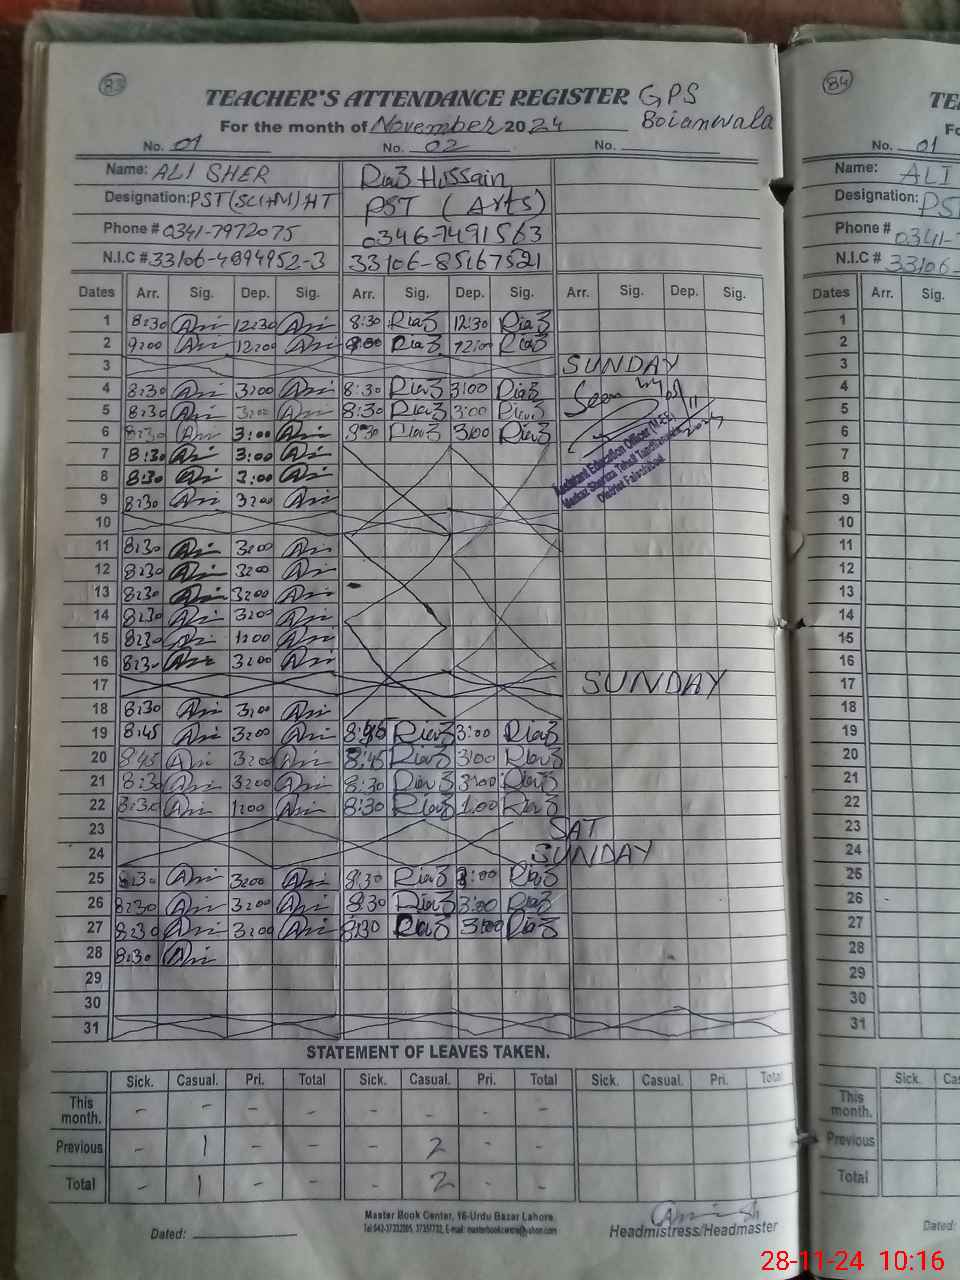 83
TEACHER'S ATTENDANCE REGISTER GPS
For the month of November 2024 Boianwala
No. 01 No. 02 No.
Name: ALI SHER Riaz Hussain
Designation: PST(SCI+M)HT PST (Arts)
Phone # 0341-7972075 0346-7491563
N.I.C # 33106-4894952-3 33106-85167521
Dates Arr. Sig. Dep. Sig. Arr. Sig. Dep. Sig. Arr. Sig. Dep. Sig.
1 8:30 Ali 12:30 Ali 8:30 Riaz 12:30 Riaz
2 9:00 Ali 12:00 Ali 9:00 Riaz 12:00 Riaz
3 SUNDAY
4 8:30 Ali 3:00 Ali 8:30 Riaz 3:00 Riaz Seen
5 8:30 Ali 3:00 Ali 8:30 Riaz 3:00 Riaz
6 8:30 Ali 3:00 Ali 8:30 Riaz 3:00 Riaz
Assistant Education Officer (M.EE)
District Faisalabad
7 8:30 Ali 3:00 Ali
8 8:30 Ali 3:00 Ali
9 8:30 Ali 3:00 Ali
10
11 8:30 Ali 3:00 Ali
12 8:30 Ali 3:00 Ali
13 8:30 Ali 3:00 Ali
14 8:30 Ali 3:00 Ali
15 8:30 Ali 1:00 Ali
16 8:30 Ali 3:00 Ali
17 SUNDAY
18 8:30 Ali 3:00 Ali
19 8:45 Ali 3:00 Ali 8:45 Riaz 3:00 Riaz
20 8:45 Ali 3:00 Ali 8:45 Riaz 3:00 Riaz
21 8:30 Ali 3:00 Ali 8:30 Riaz 3:00 Riaz
22 8:30 Ali 1:00 Ali 8:30 Riaz 1:00 Riaz
23 SAT
24 SUNDAY
25 8:30 Ali 3:00 Ali 8:30 Riaz 3:00 Riaz
26 8:30 Ali 3:00 Ali 8:30 Riaz 3:00 Riaz
27 8:30 Ali 3:00 Ali 8:30 Riaz 3:00 Riaz
28 8:30 Ali
29
30
31
STATEMENT OF LEAVES TAKEN.
Sick. Casual. Pri. Total Sick. Casual. Pri. Total Sick. Casual. Pri. Total
This month. - - - - - - - -
Previous - 1 - - - 2 - -
Total - 1 - - - 2 - -
Master Book Center, 16-Urdu Bazar Lahore
Dated: Headmistress/Headmaster
84
TE
Fo
No. 01
Name: ALI
Designation: PS
Phone # 0341-7
N.I.C # 33106-
Dates Arr. Sig.
1
2
3
4
5
6
7
8
9
10
11
12
13
14
15
16
17
18
19
20
21
22
23
24
25
26
27
28
29
30
31
Sick. Ca
This month.
Previous
Total
Dated:
28-11-24 10:16